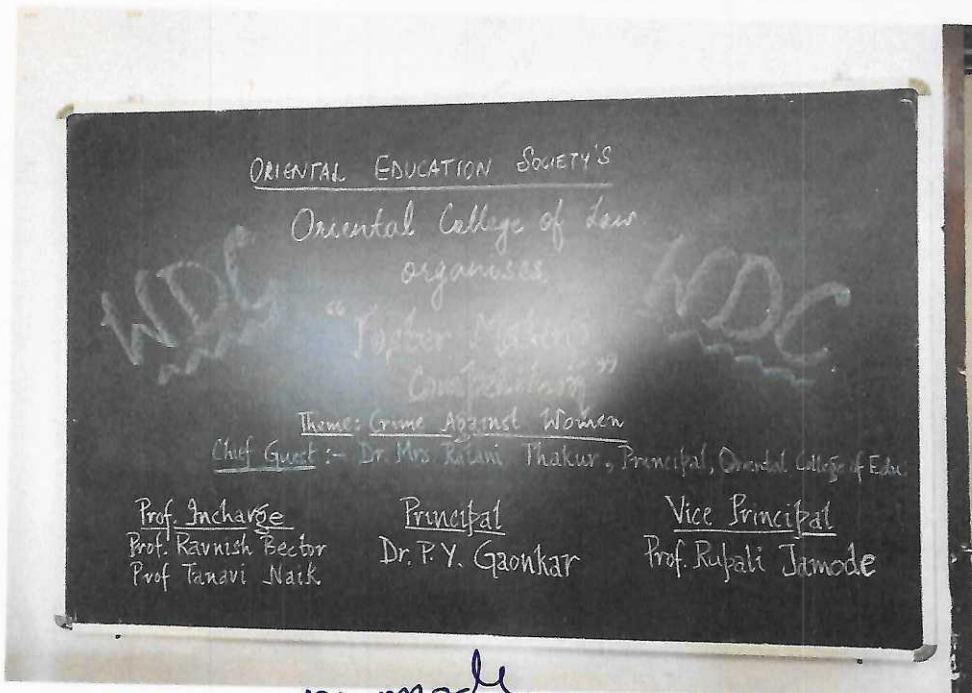 ORIENTAL EDUCATION SOCIETY'S
Oriental College of Law
organises
"Poster Making
Competition"
WDC
WDC
Theme: Crime Against Women
Chief Guest :- Dr. Mrs. Rajani Thakur, Principal, Oriental College of Edu.
Prof. Incharge
Prof. Ravnish Bector
Prof Tanavi Naik
Principal
Dr. P. Y. Gaonkar
Vice Principal
Prof. Rupali Jamode